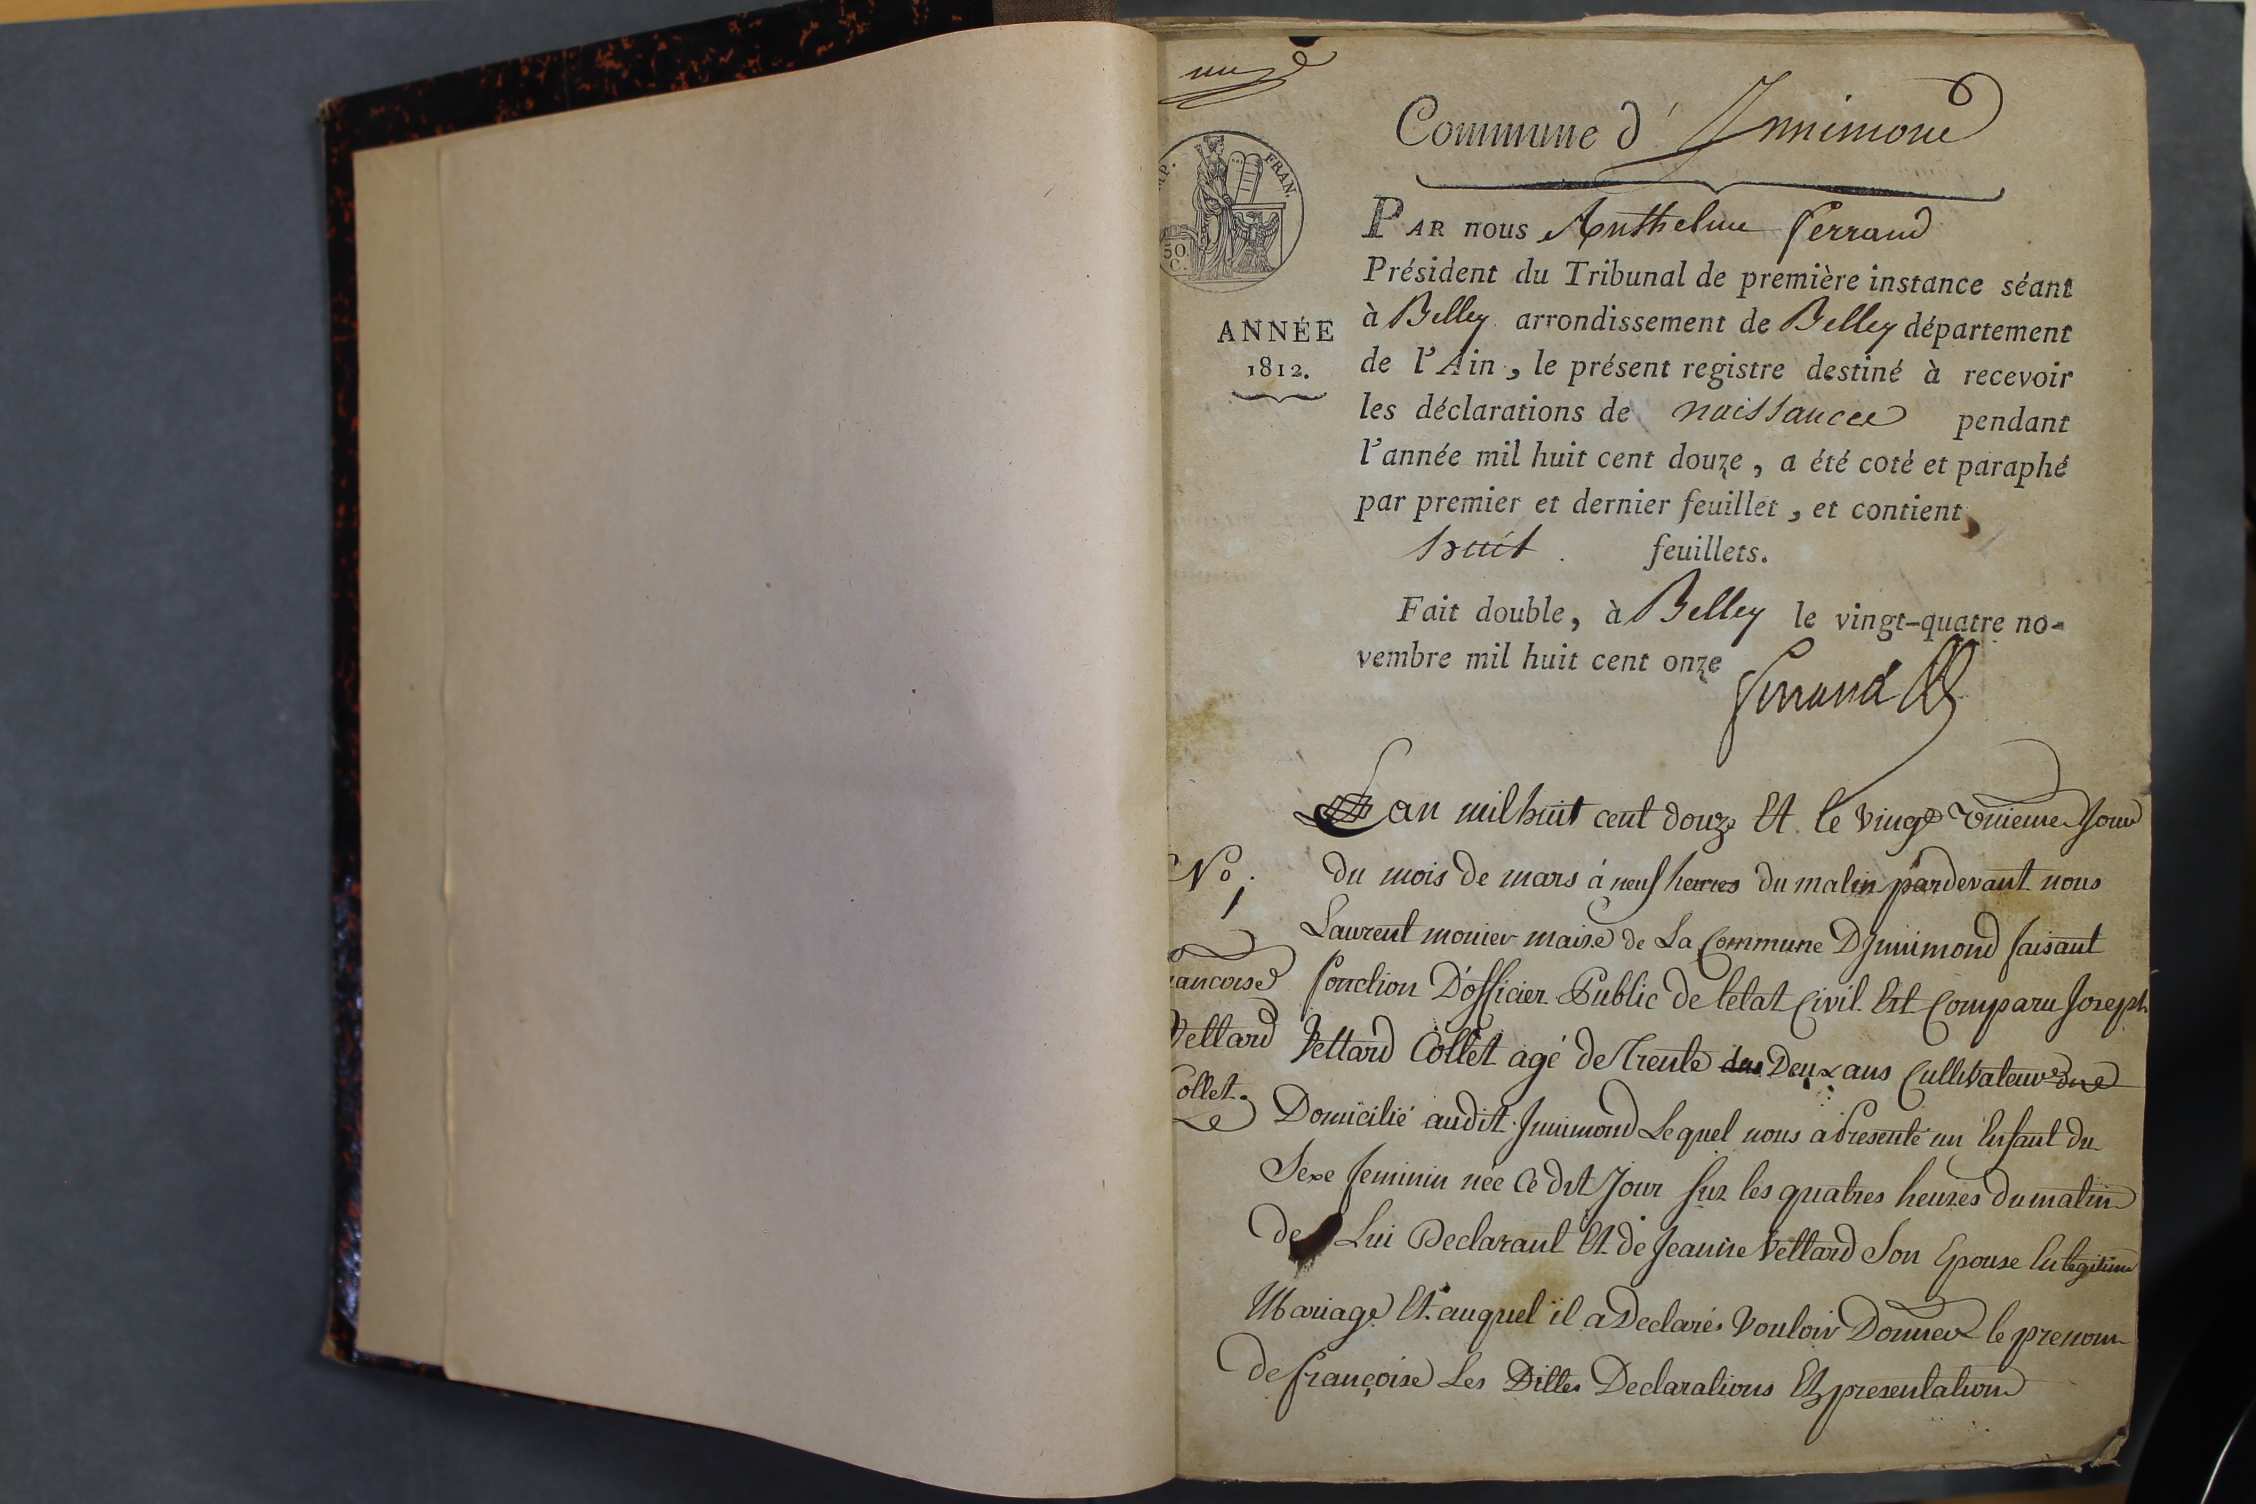 Commune d'Innimond
IMP. FRAN.
50
C.
PAR nous Anthelme ferrand
Président du Tribunal de première instance séant
à Belley arrondissement de Belley département
ANNÉE
1812.
de l'Ain, le présent registre destiné à recevoir
les déclarations de naissances pendant
l'année mil huit cent douze, a été coté et paraphé
par premier et dernier feuillet, et contient
huit feuillets.
Fait double, à Belley le vingt-quatre no-
vembre mil huit cent onze
ferrand
No
1
francoise
Vettard
Collet.
L'an mil huit cent douze Et le vingt unieme Jour
du mois de mars á neuf heures du matin pardevant nous
Laurent monier maire de La Commune D'Innimond faisant
fonction D'officier Public de letat Civil Est Comparu Joseph
Vettard Collet agé de Trente Deux ans Cultivateur
Domicilié audit Innimond Lequel nous a Presenté un Enfant du
Sexe feminin née Ce dit Jour sur les quatres heures du matin
de Lui Declarant Et de Jeanne Vettard Son Epouse En legitime
Mariage Et auquel il a Declarés Vouloir Donner le prenom
de françoise Les Dittes Declarations Et presentation